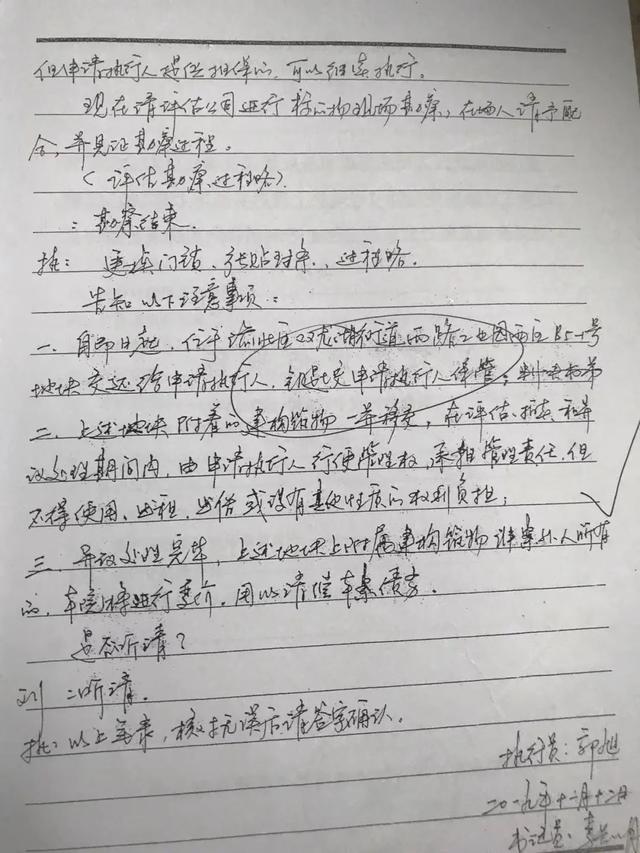 但申请执行人提供担保的,可以继续执行。
现在请评估公司进行标的物现场勘察,在场人请予配
合,并见证勘察过程。
(评估勘察过程略)
:勘察结束。
执: 更换门锁、张贴封条、过程略。
告知以下注意事项:
一、自即日起,位于 区双龙湖街道 西路工业园西区B5-1号
地块交还给申请执行人,钥匙交申请执行人保管;
二、上述地块附着的建构筑物一并移交,在评估、拍卖、和异
议处理期间内,由申请执行人行使管理权,承担管理责任,但
不得使用、出租、出借或设有其他性质的权利负担;
三、异议处理完毕,上述地块上附属建构筑物非案外人所有
的,本院将进行变价,用以清偿本案债务。
是否听清?
刘:听清。
执:以上笔录,核对无误后请签字确认。
执行员:郭旭
二〇一九年十二月十二日
书记员: